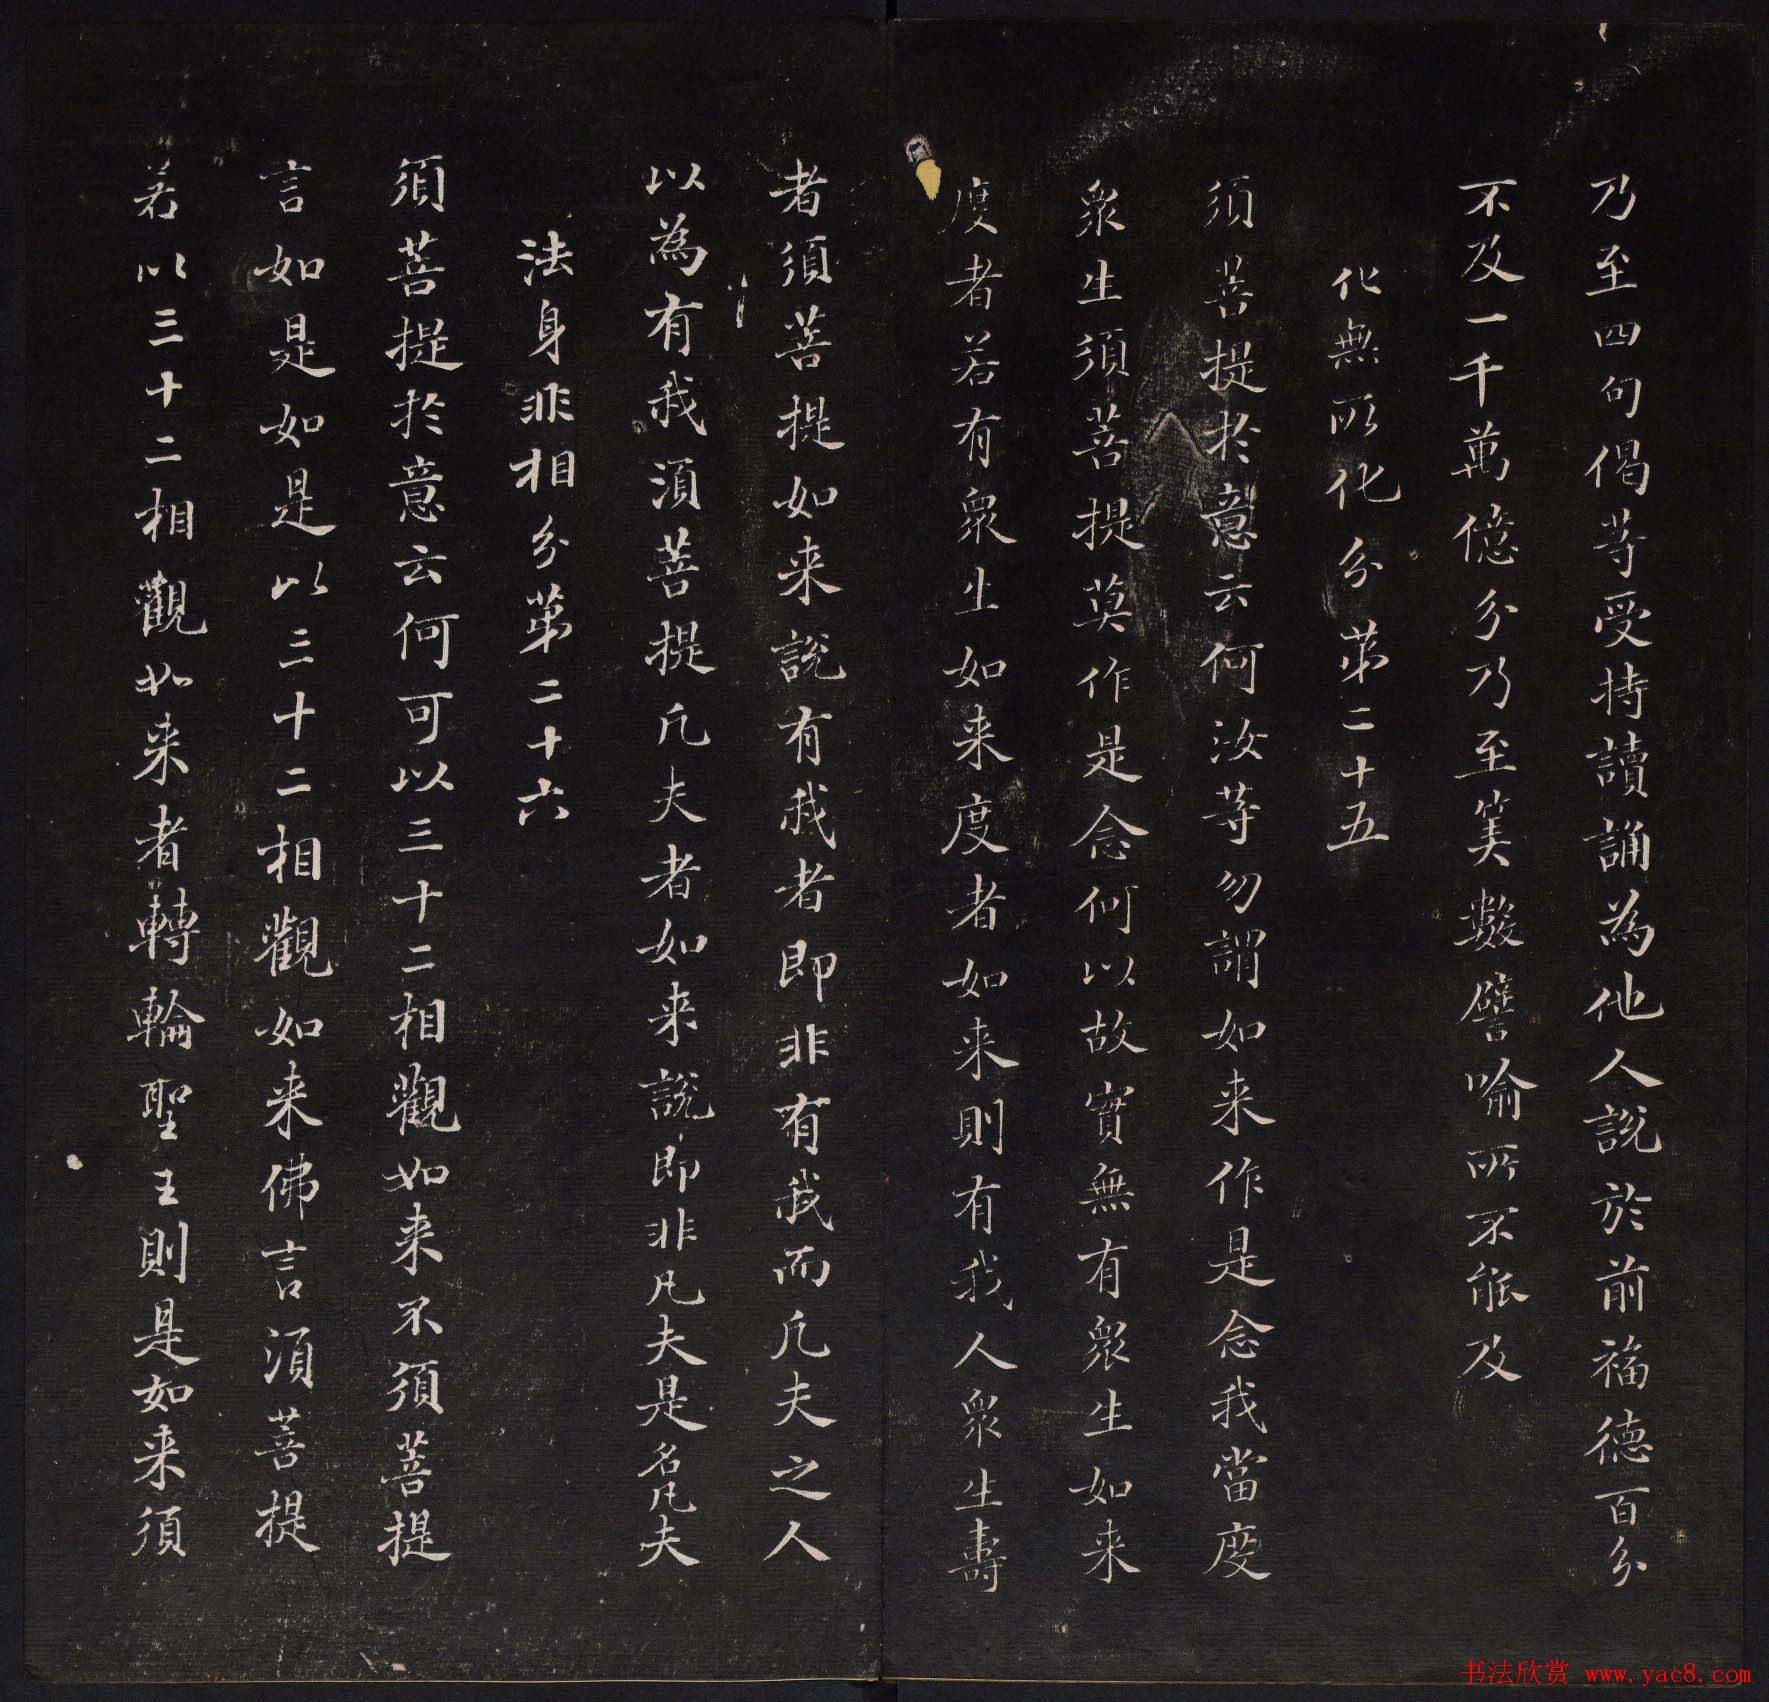 乃至四句偈等受持讀誦為他人說於前福德百分
不及一千萬億分乃至筭數譬喻所不能及
化無所化分第二十五
須菩提於意云何汝等勿謂如来作是念我當度
衆生須菩提莫作是念何以故實無有衆生如来
度者若有衆生如来度者如来則有我人衆生壽
者須菩提如来說有我者即非有我而凡夫之人
以為有我須菩提凡夫者如来說即非凡夫是名凡夫
法身非相分第二十六
須菩提於意云何可以三十二相觀如来不須菩提
言如是如是以三十二相觀如来佛言須菩提
若以三十二相觀如来者轉輪聖王則是如来須
书法欣赏 www.yac8.com